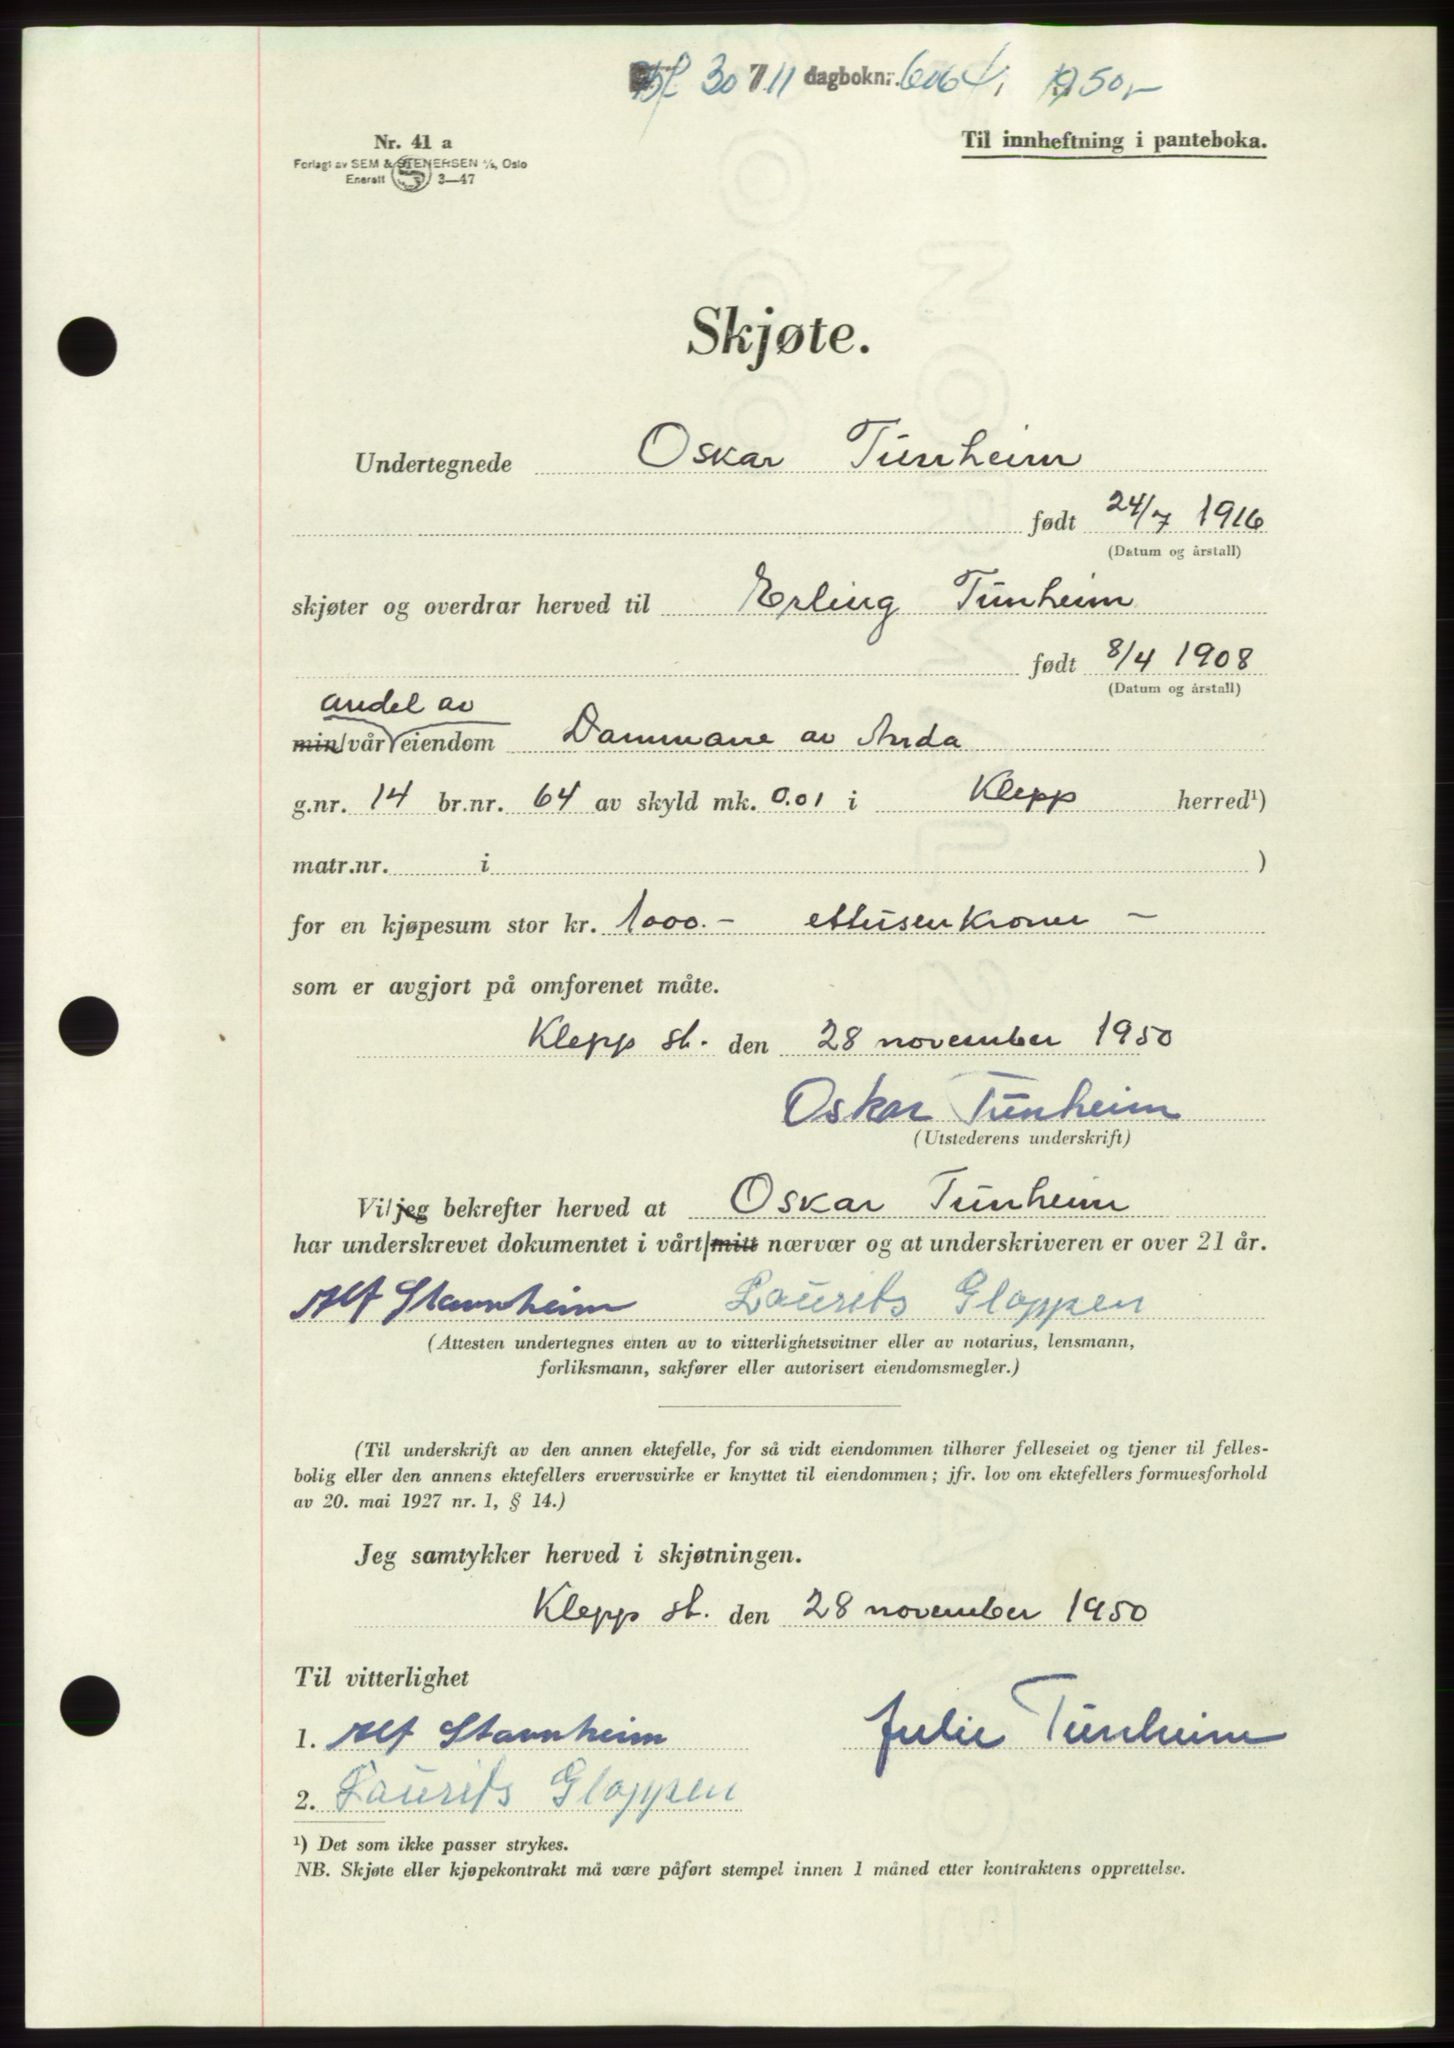 30/11 dagboknr. 6064, 1950,-
Nr. 41 a
Til innheftning i panteboka.
Forlagt av SEM & STENERSEN A/S, Oslo
Enerett S 3—47
Skjøte.
Undertegnede Oskar Tunheim
født 24/7 1916
(Datum og årstall)
skjøter og overdrar herved til Erling Tunheim
født 8/4 1908
(Datum og årstall)
andel av
min/vår eiendom Dammane av Anda
g.nr. 14 br.nr. 64 av skyld mk. 0.01 i Klepp herred¹)
matr.nr. i )
for en kjøpesum stor kr. 1000.- ettusen kroner -
som er avgjort på omforenet måte.
Klepp st. den 28 november 1950
Oskar Tunheim
(Utstederens underskrift)
Vi/jeg bekrefter herved at Oskar Tunheim
har underskrevet dokumentet i vårt/mitt nærvær og at underskriveren er over 21 år.
Alf Stavnheim Laurits Gloppen
(Attesten undertegnes enten av to vitterlighetsvitner eller av notarius, lensmann,
forliksmann, sakfører eller autorisert eiendomsmegler.)
(Til underskrift av den annen ektefelle, for så vidt eiendommen tilhører felleseiet og tjener til felles-
bolig eller den annens ektefellers ervervsvirke er knyttet til eiendommen; jfr. lov om ektefellers formuesforhold
av 20. mai 1927 nr. 1, § 14.)
Jeg samtykker herved i skjøtningen.
Klepp st. den 28 november 1950
Til vitterlighet
1. Alf Stavnheim Julie Tunheim
2. Laurits Gloppen
¹) Det som ikke passer strykes.
NB. Skjøte eller kjøpekontrakt må være påført stempel innen 1 måned etter kontraktens opprettelse.